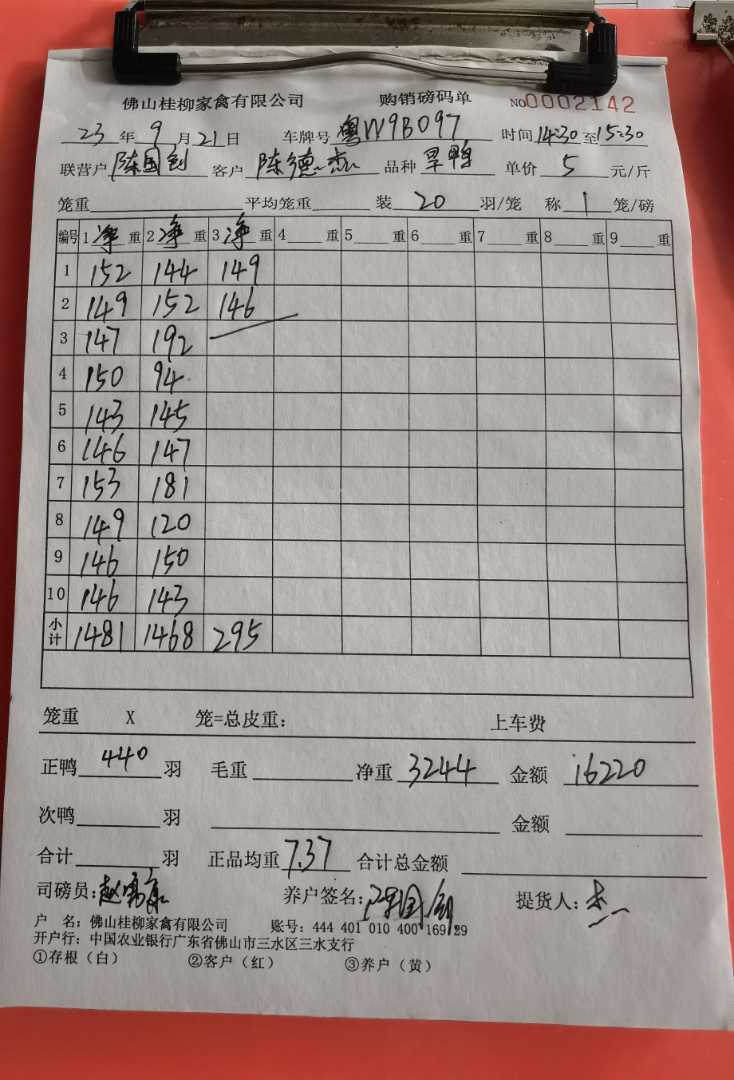 佛山桂柳家禽有限公司 购销磅码单 NO0002142
23年9月21日 车牌号粤W9B097 时间14:30至15:30
联营户陈国钊 客户陈德杰 品种旱鸭 单价5元/斤
笼重 平均笼重 装20羽/笼 称1笼/磅
编号 1净重 2净重 3净重 4重 5重 6重 7重 8重 9重
1 152 144 149
2 149 152 146
3 147 192
4 150 94
5 143 145
6 146 147
7 153 181
8 149 120
9 146 150
10 146 143
小计 1481 1468 295
笼重 X 笼=总皮重: 上车费
正鸭440羽 毛重 净重3244 金额16220
次鸭 羽 金额
合计 羽 正品均重7.37 合计总金额
司磅员: 养户签名:陈国钊 提货人:杰
户 名:佛山桂柳家禽有限公司 账号:444 401 010 400 169 29
开户行:中国农业银行广东省佛山市三水区三水支行
①存根(白) ②客户(红) ③养户(黄)